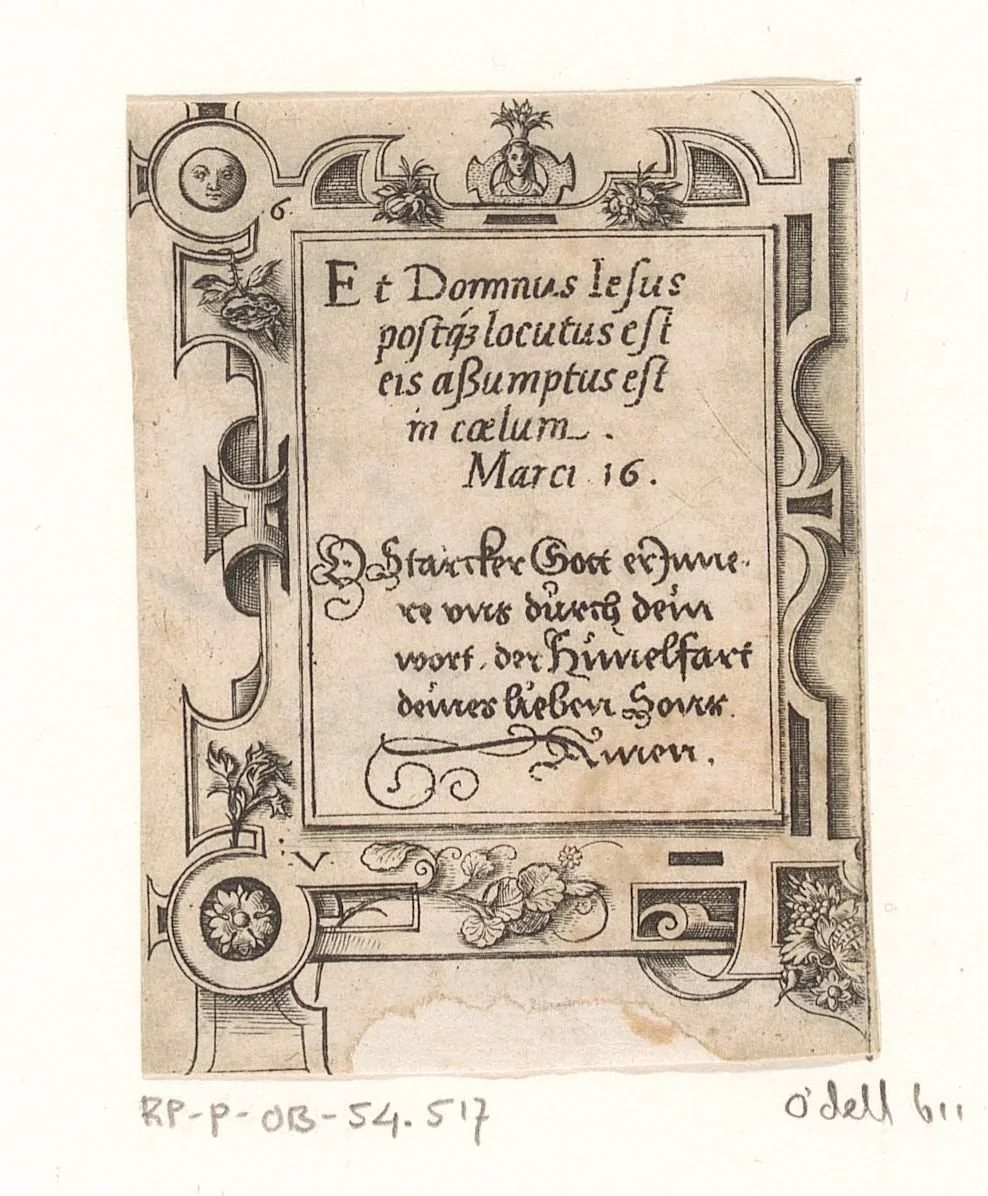 6.
Et Dommnus Iesus
postq́ȝ locutus est
eis aßumptus est
in cœlum.
Marci 16.
O Starcker Gott erJnne-
re vns durch dein
wort, der Him̄elfart
deines lieben Sons.
Amen.
V
RP-P-OB-54.517
O'dell b11